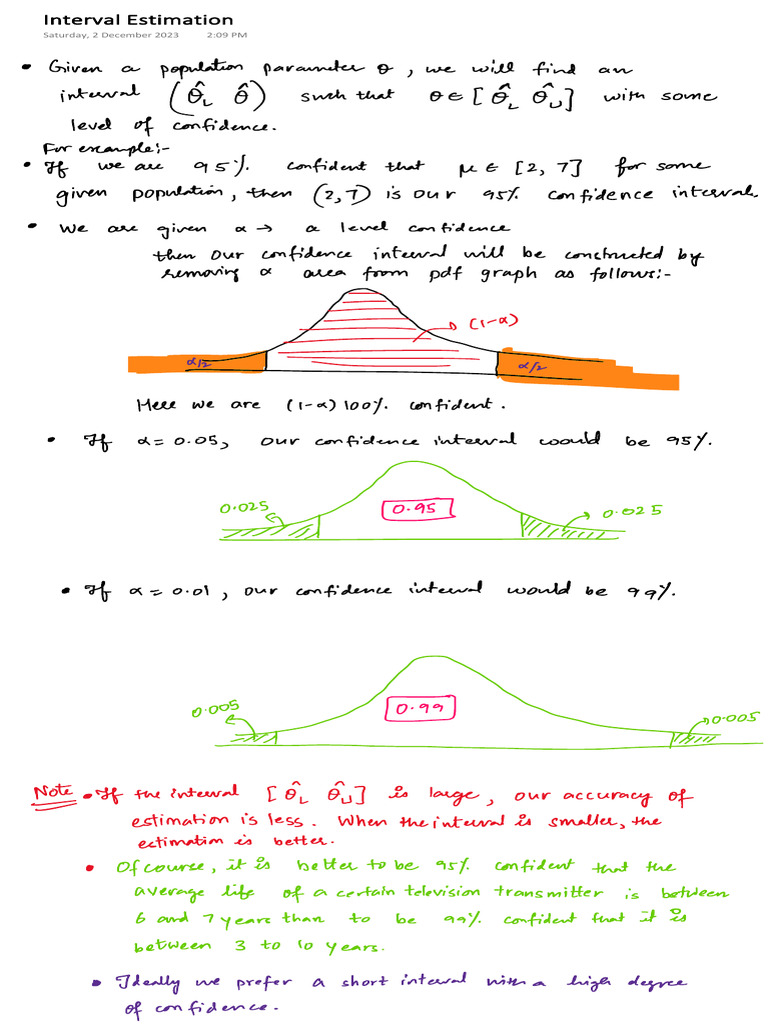 Interval Estimation
Saturday, 2 December 2023 2:09 PM
• Given a population parameter θ, we will find an
interval (θ̂_L θ̂) such that θ ∈ [θ̂_L θ̂_U] with some
level of confidence.
For example:-
• If we are 95% confident that μ ∈ [2, 7] for some
given population, then (2,7) is our 95% confidence interval.
• We are given α → α level confidence
then our confidence interval will be constructed by
removing α area from pdf graph as follows:-
(1-α)
α/2 α/2
Here we are (1-α)100% confident.
• If α = 0.05, our confidence interval would be 95%.
0.025 0.95 0.025
• If α = 0.01, our confidence interval would be 99%.
0.005 0.99 0.005
Note • If the interval [θ̂_L θ̂_U] is large, our accuracy of
estimation is less. When the interval is smaller, the
estimation is better.
• Of course, it is better to be 95% confident that the
average life of a certain television transmitter is between
6 and 7 years than to be 99% confident that it is
between 3 to 10 years.
• Ideally we prefer a short interval with a high degree
of confidence.